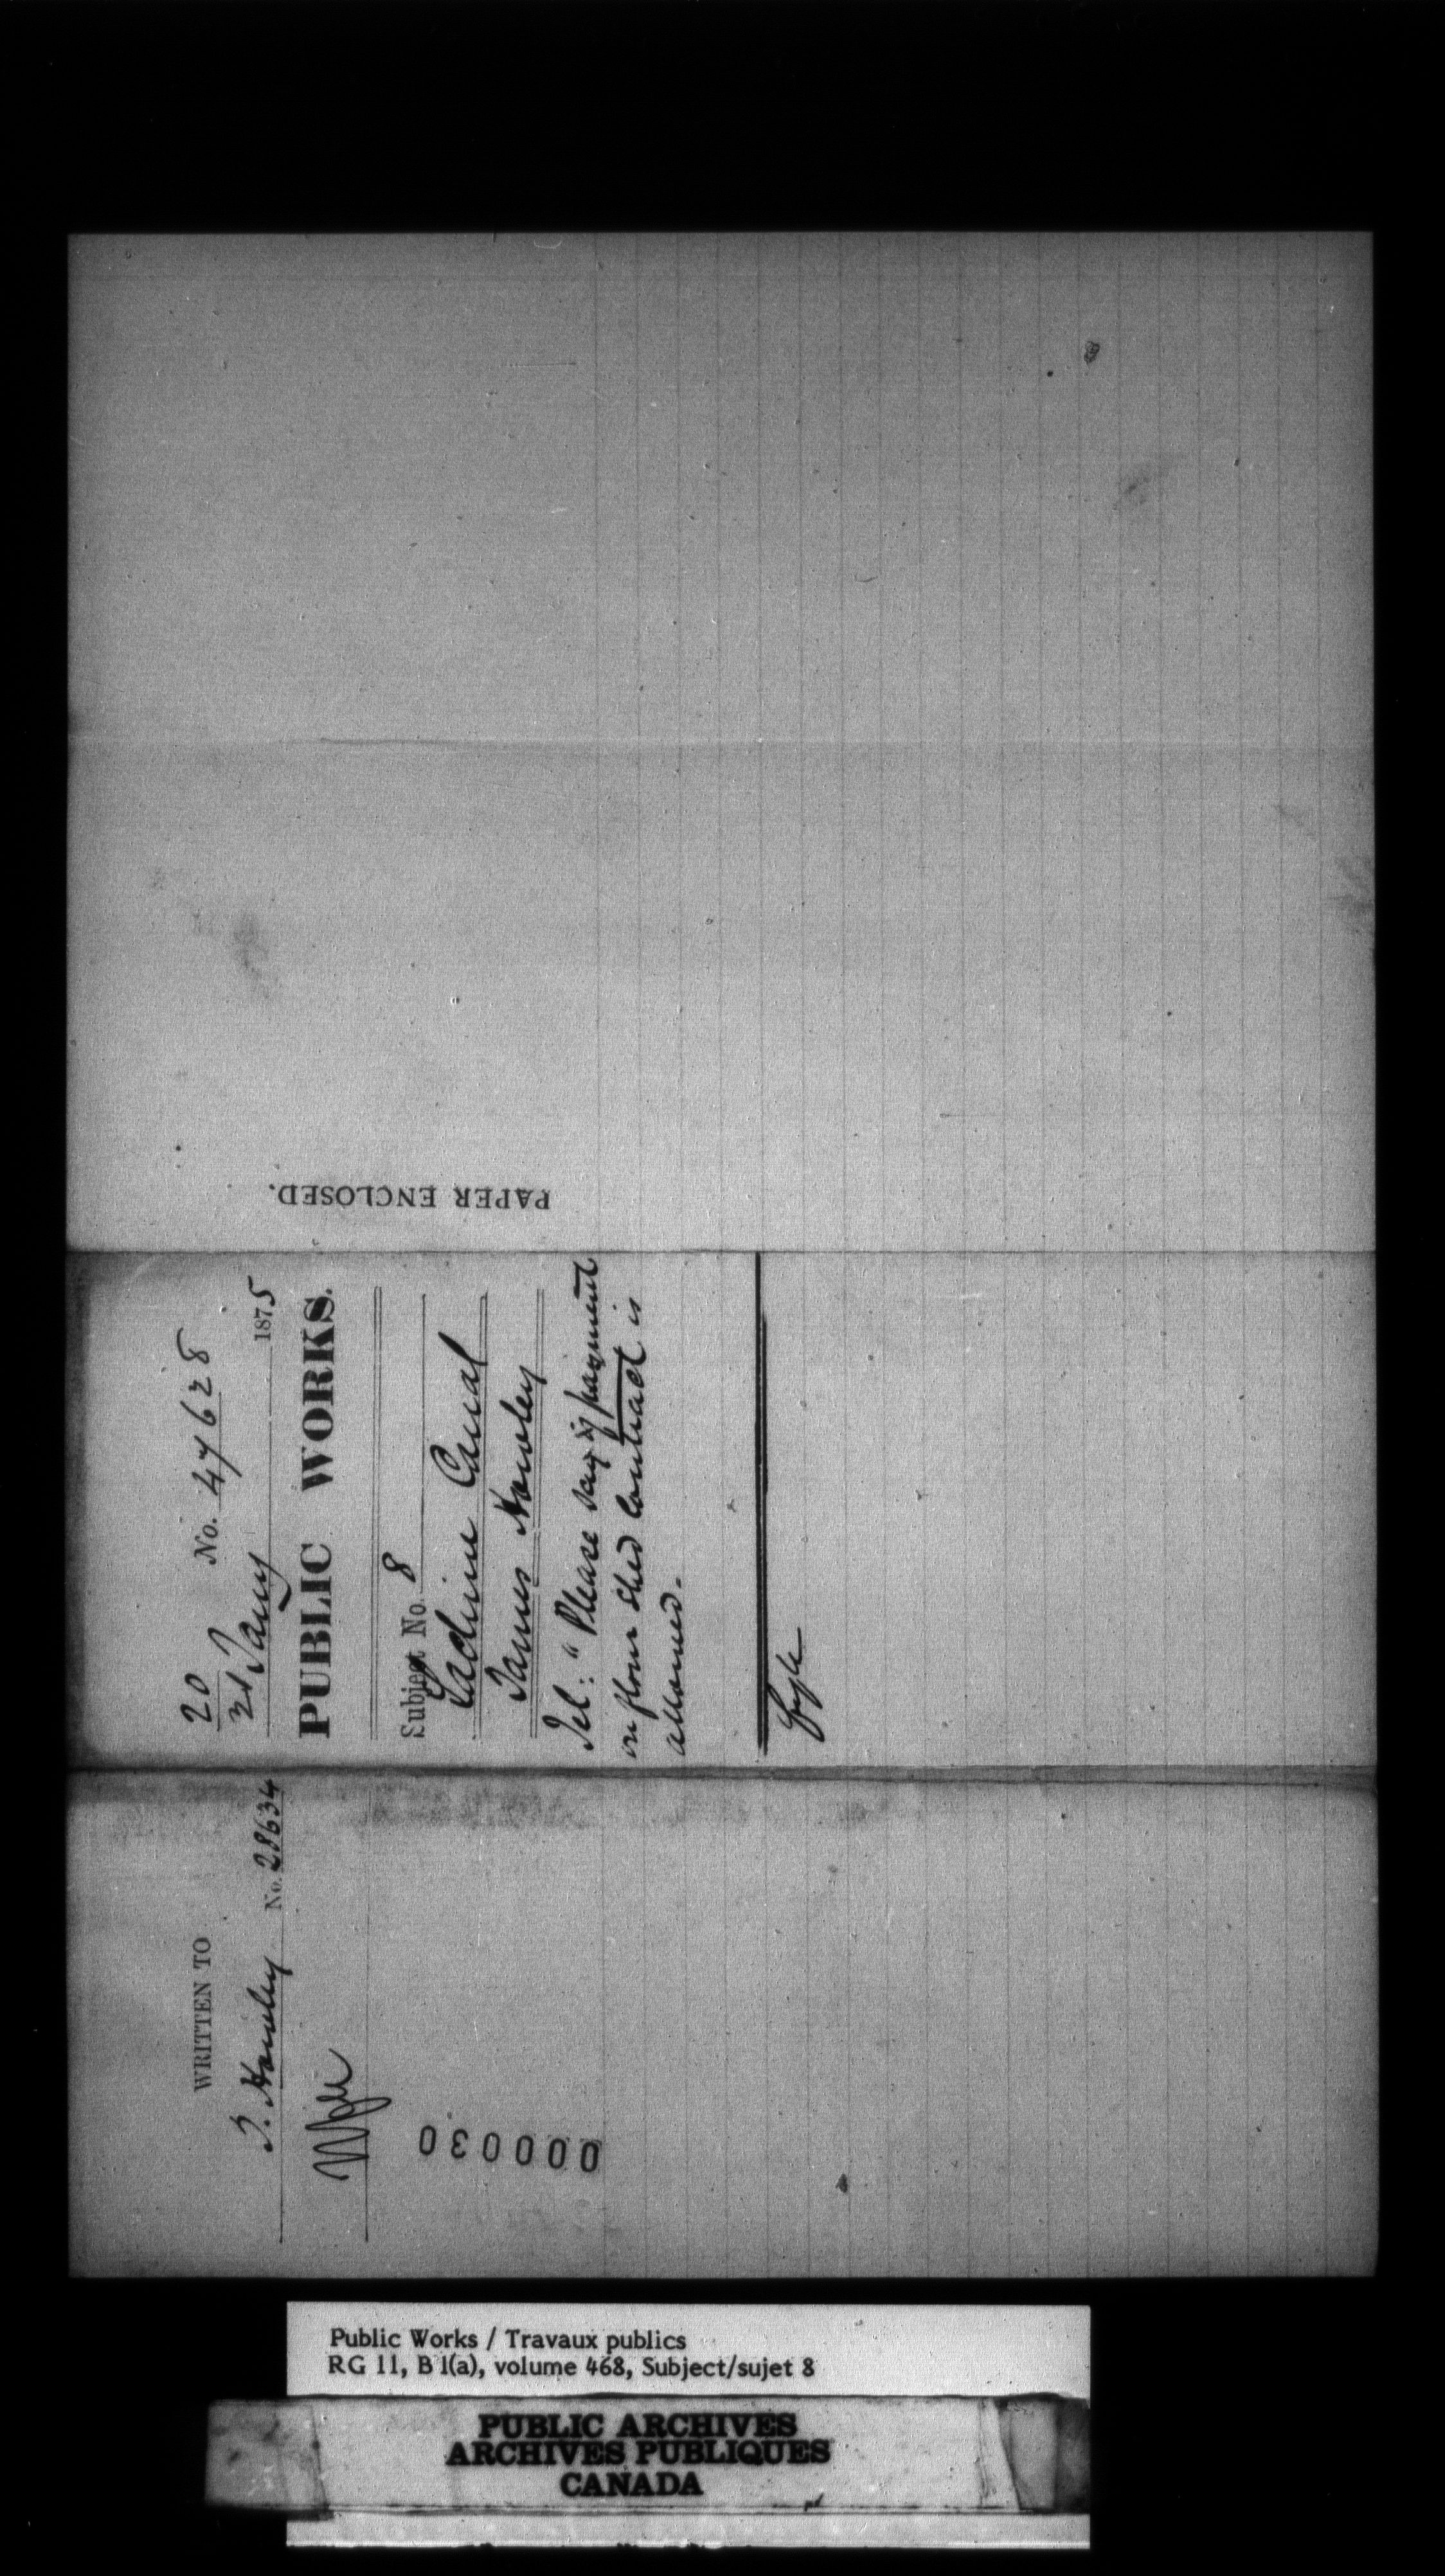 PAPER ENCLOSED.
20 No. 47628
21 Jany 1875
PUBLIC WORKS.
Subject No. 8
Lachine Canal
James Howley
Tel: "Please say if payment
on flour shed contract is
allowed.
fyle
WRITTEN TO
J. Howley No. 28634
000030
Public Works / Travaux publics
RG 11, B 1(a), volume 468, Subject/sujet 8
PUBLIC ARCHIVES
ARCHIVES PUBLIQUES
CANADA